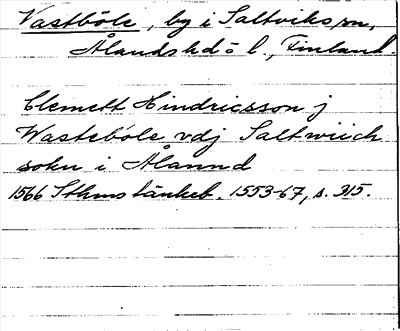 Vastböle, by i Saltviks sn,
Ålands hd o l., Finland.
Clemett Hindricsson j
Wasteböle vdj Saltwiich
sokn i Ålannd
1566 Sthms tänkeb. 1553-67, s. 315.